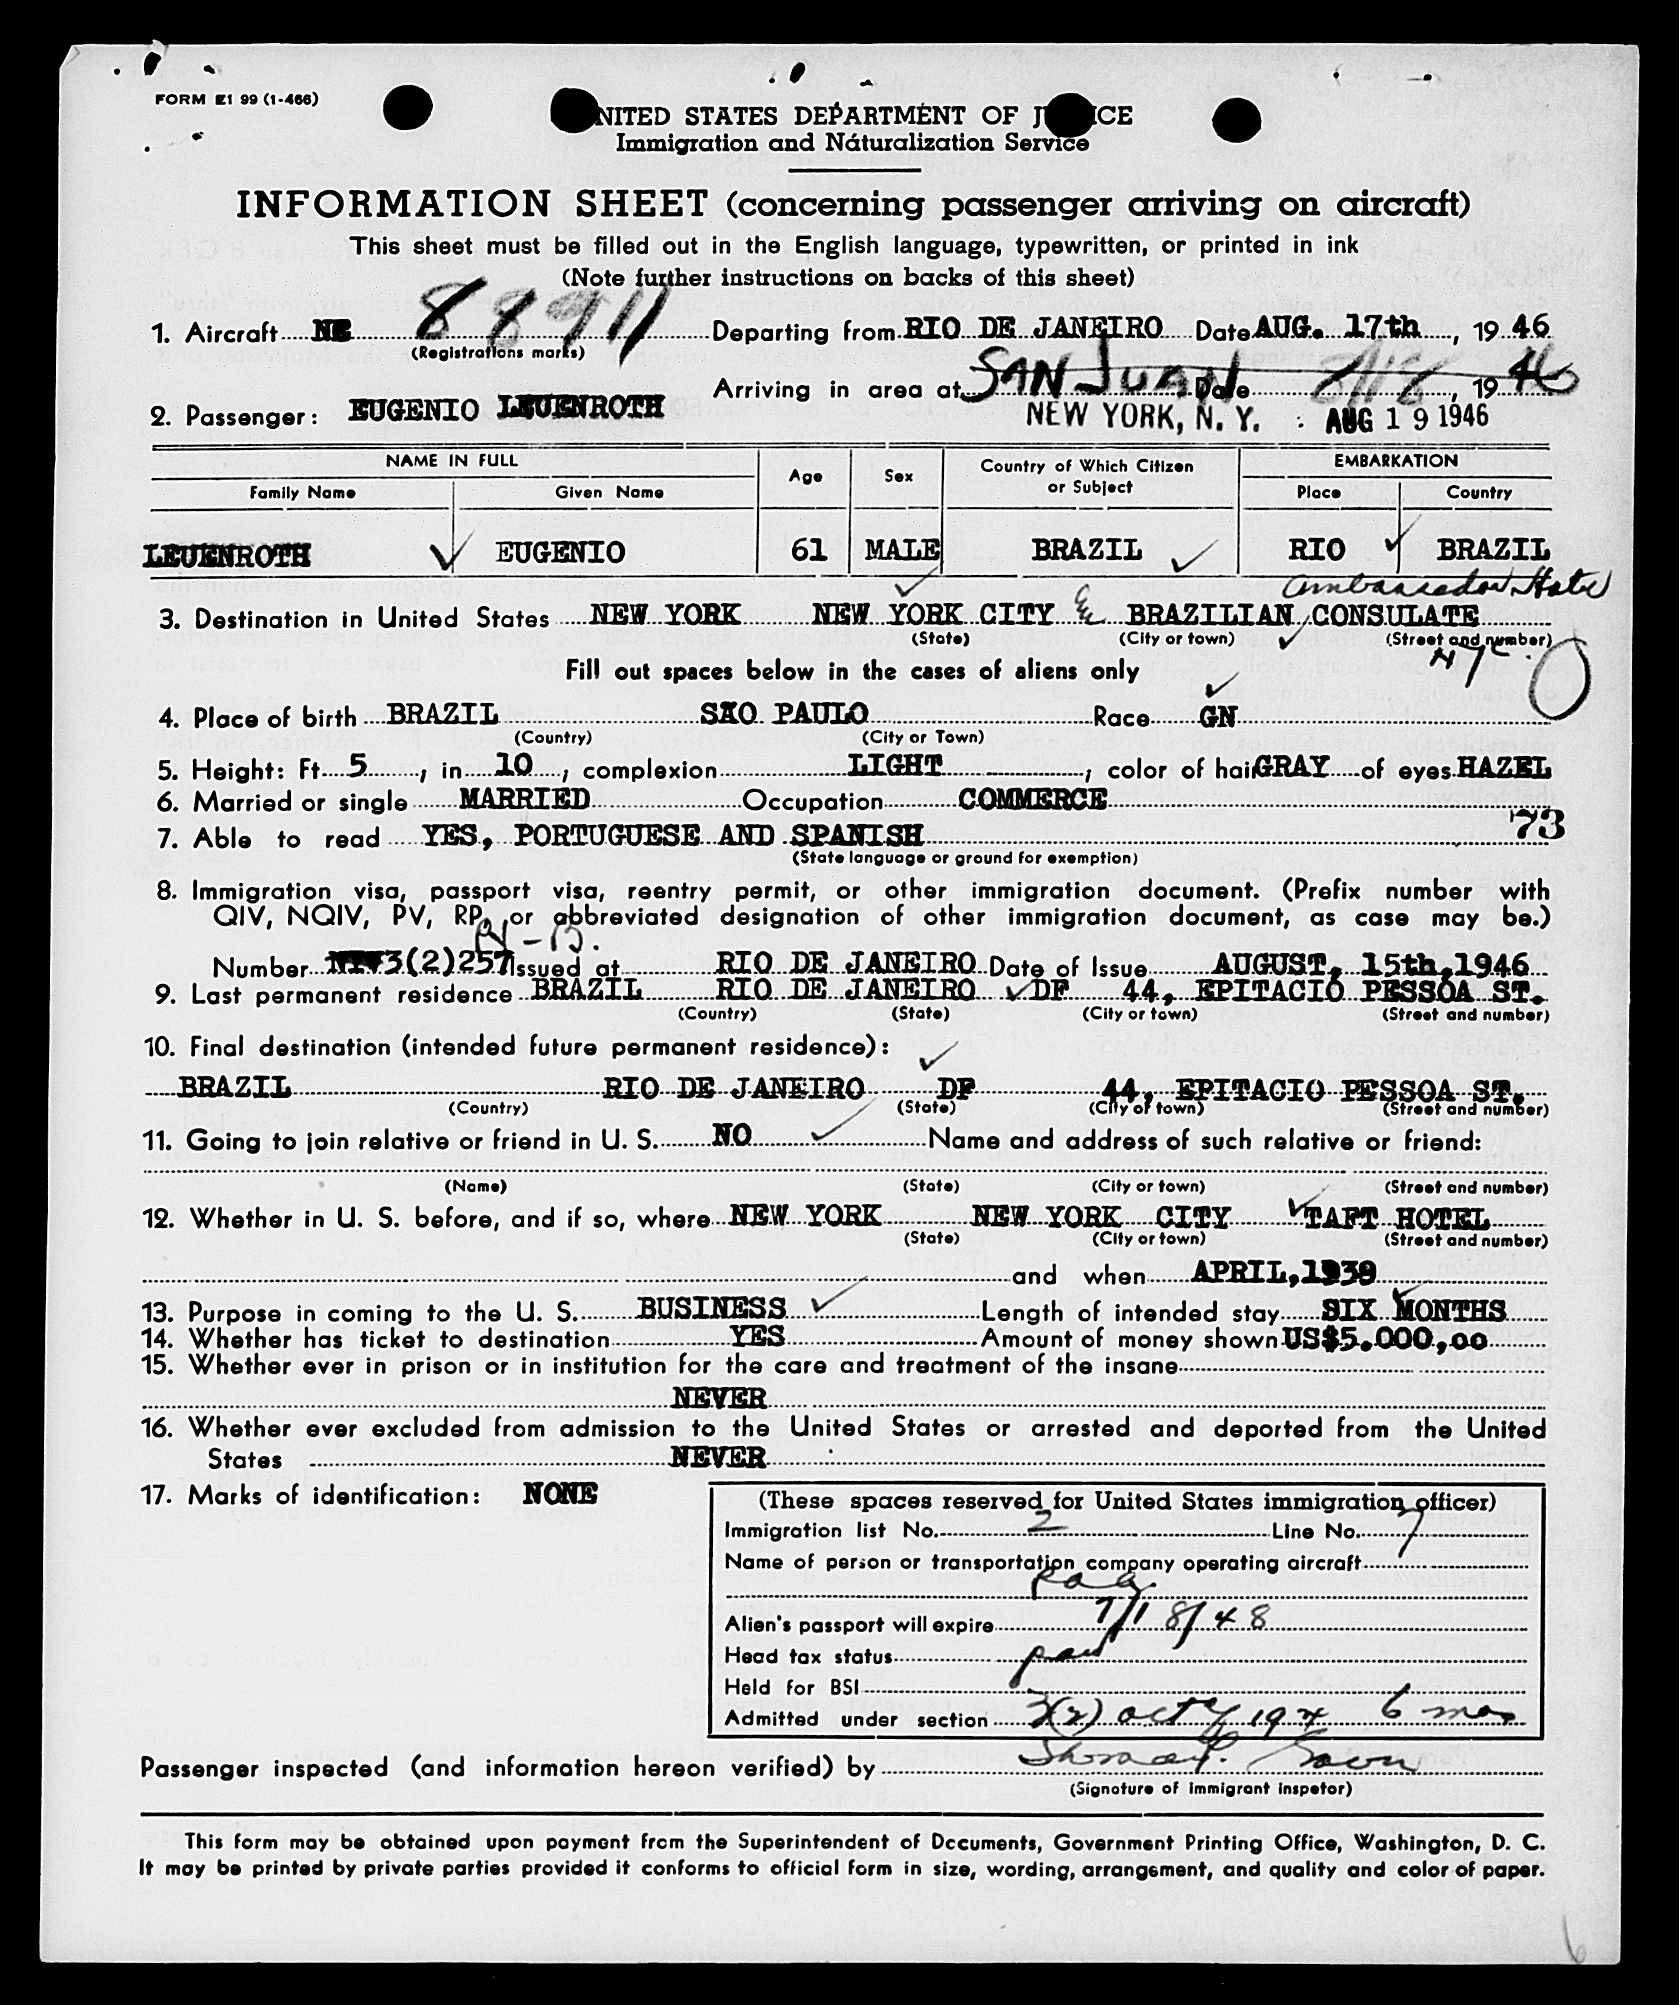 FORM EI 99 (1-466)
UNITED STATES DEPARTMENT OF JUSTICE
Immigration and Naturalization Service
INFORMATION SHEET (concerning passenger arriving on aircraft)
This sheet must be filled out in the English language, typewritten, or printed in ink
(Note further instructions on backs of this sheet)
1. Aircraft NC 88911 Departing from RIO DE JANEIRO Date AUG. 17th, 1946
(Registrations marks)
Arriving in area at SAN JUAN Date 8/18, 1946
2. Passenger: EUGENIO LEUENROTH NEW YORK, N. Y. : AUG 19 1946
NAME IN FULL Age Sex Country of Which Citizen or Subject EMBARKATION
Family Name Given Name Place Country
LEUENROTH EUGENIO 61 MALE BRAZIL RIO BRAZIL
Ambassador Hotel
3. Destination in United States NEW YORK NEW YORK CITY BRAZILIAN CONSULATE
(State) (City or town) (Street and number)
NYC.
Fill out spaces below in the cases of aliens only
4. Place of birth BRAZIL SÃO PAULO Race GN
(Country) (City or Town)
5. Height: Ft. 5, in. 10, complexion LIGHT; color of hair GRAY of eyes HAZEL
6. Married or single MARRIED Occupation COMMERCE
73
7. Able to read YES, PORTUGUESE AND SPANISH
(State language or ground for exemption)
8. Immigration visa, passport visa, reentry permit, or other immigration document. (Prefix number with
QIV, NQIV, PV, RP, or abbreviated designation of other immigration document, as case may be.)
Number 3(2)257 Issued at RIO DE JANEIRO Date of Issue AUGUST, 15th,1946
9. Last permanent residence BRAZIL RIO DE JANEIRO DF 44, EPITACIO PESSOA ST.
(Country) (State) (City or town) (Street and number)
10. Final destination (intended future permanent residence):
BRAZIL RIO DE JANEIRO DF 44, EPITACIO PESSOA ST.
(Country) (State) (City or town) (Street and number)
11. Going to join relative or friend in U. S. NO Name and address of such relative or friend:
(Name) (State) (City or town) (Street and number)
12. Whether in U. S. before, and if so, where NEW YORK NEW YORK CITY TAFT HOTEL
(State) (City or town) (Street and number)
and when APRIL,1939
13. Purpose in coming to the U. S. BUSINESS Length of intended stay SIX MONTHS
14. Whether has ticket to destination YES Amount of money shown US$5.000,00
15. Whether ever in prison or in institution for the care and treatment of the insane
NEVER
16. Whether ever excluded from admission to the United States or arrested and deported from the United
States NEVER
17. Marks of identification: NONE
(These spaces reserved for United States immigration officer)
Immigration list No. 2 Line No. 7
Name of person or transportation company operating aircraft
paa
Alien's passport will expire 7/18/48
Head tax status
Held for BSI
Admitted under section 3(2) act of 1924 6 mos
Passenger inspected (and information hereon verified) by
(Signature of immigrant inspetor)
This form may be obtained upon payment from the Superintendent of Documents, Government Printing Office, Washington, D. C.
It may be printed by private parties provided it conforms to official form in size, wording, arrangement, and quality and color of paper.
6